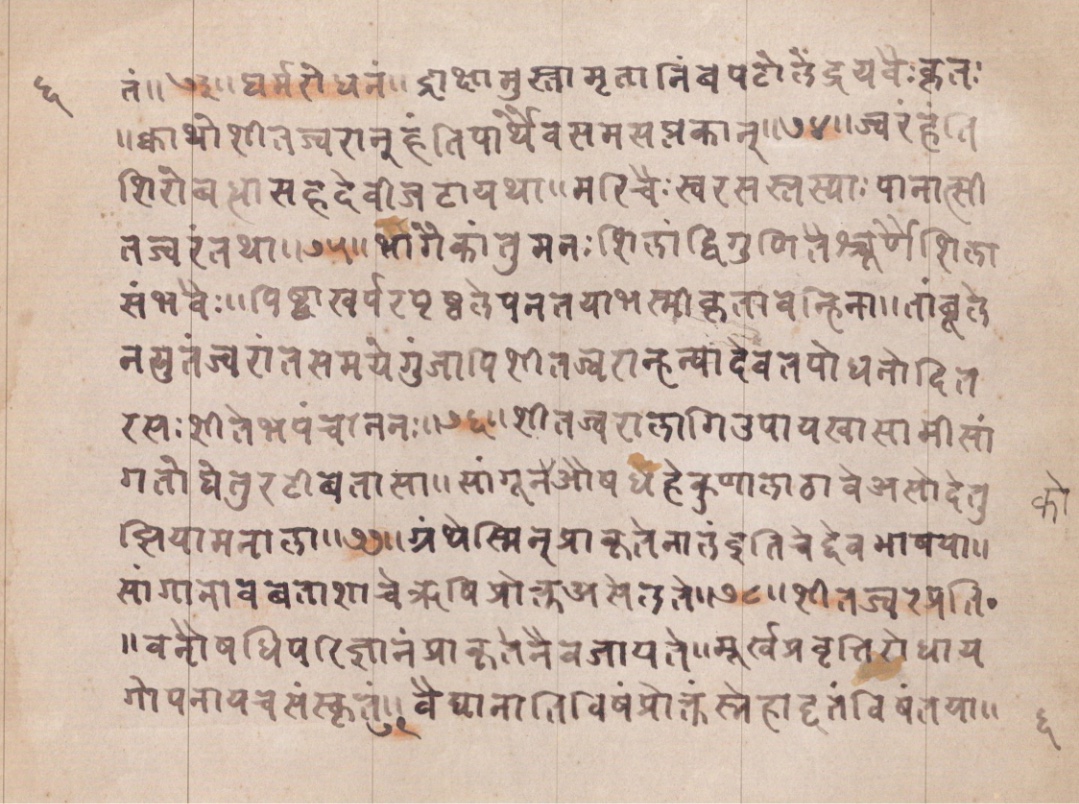 ६ तं॥७३॥घर्मरोधनं॥द्राक्षामुस्तामृतानिंबपटोलैंद्रयवैःकृतः
॥क्वाथोशीतज्वरान्हंतिपार्थैवसमसप्तकान्॥७४॥ज्वरंहंति
शिरोबध्धासहदेवीजटायथा॥मरिचैःस्वरसस्तस्याःपानात्सी
तज्वरंतथा॥७५॥भागैकांतुमनःशिलांद्विगुणितैश्चूर्णैशिला
संभवैः॥पिष्ट्वाखर्परपृष्ठलेपनतयाभस्मीकृतांवन्हिना॥तांबूले
नयुतंज्वरांतसमयेगुंजापिशीतज्वरान्हन्यादेवतपोधनोदित
रसःशीतेभपंचाननः॥७६॥शीतज्वरालागिउपायखासामीसां
गतोघेतुरटीबतासा॥सांगूनैऔषधहेकुणालाठावेअसोदेतु
झियामनाला॥७७॥ग्रंथेस्मिन्प्राकृतेनालंइतिचेद्देवभाषया॥
सांगानावबताशाचेऋषिप्रोक्तअसेलते॥७८॥शीतज्वरप्रति॰
॥वनौषधिपरिज्ञानंप्राकृतेनैवजायते॥मूर्खप्रवृत्तिरोधाय
गोपनायचसंस्कृतं॥१वैद्यानातिविषंप्रोक्तंस्नेहादृतंविषंतया॥
को
६